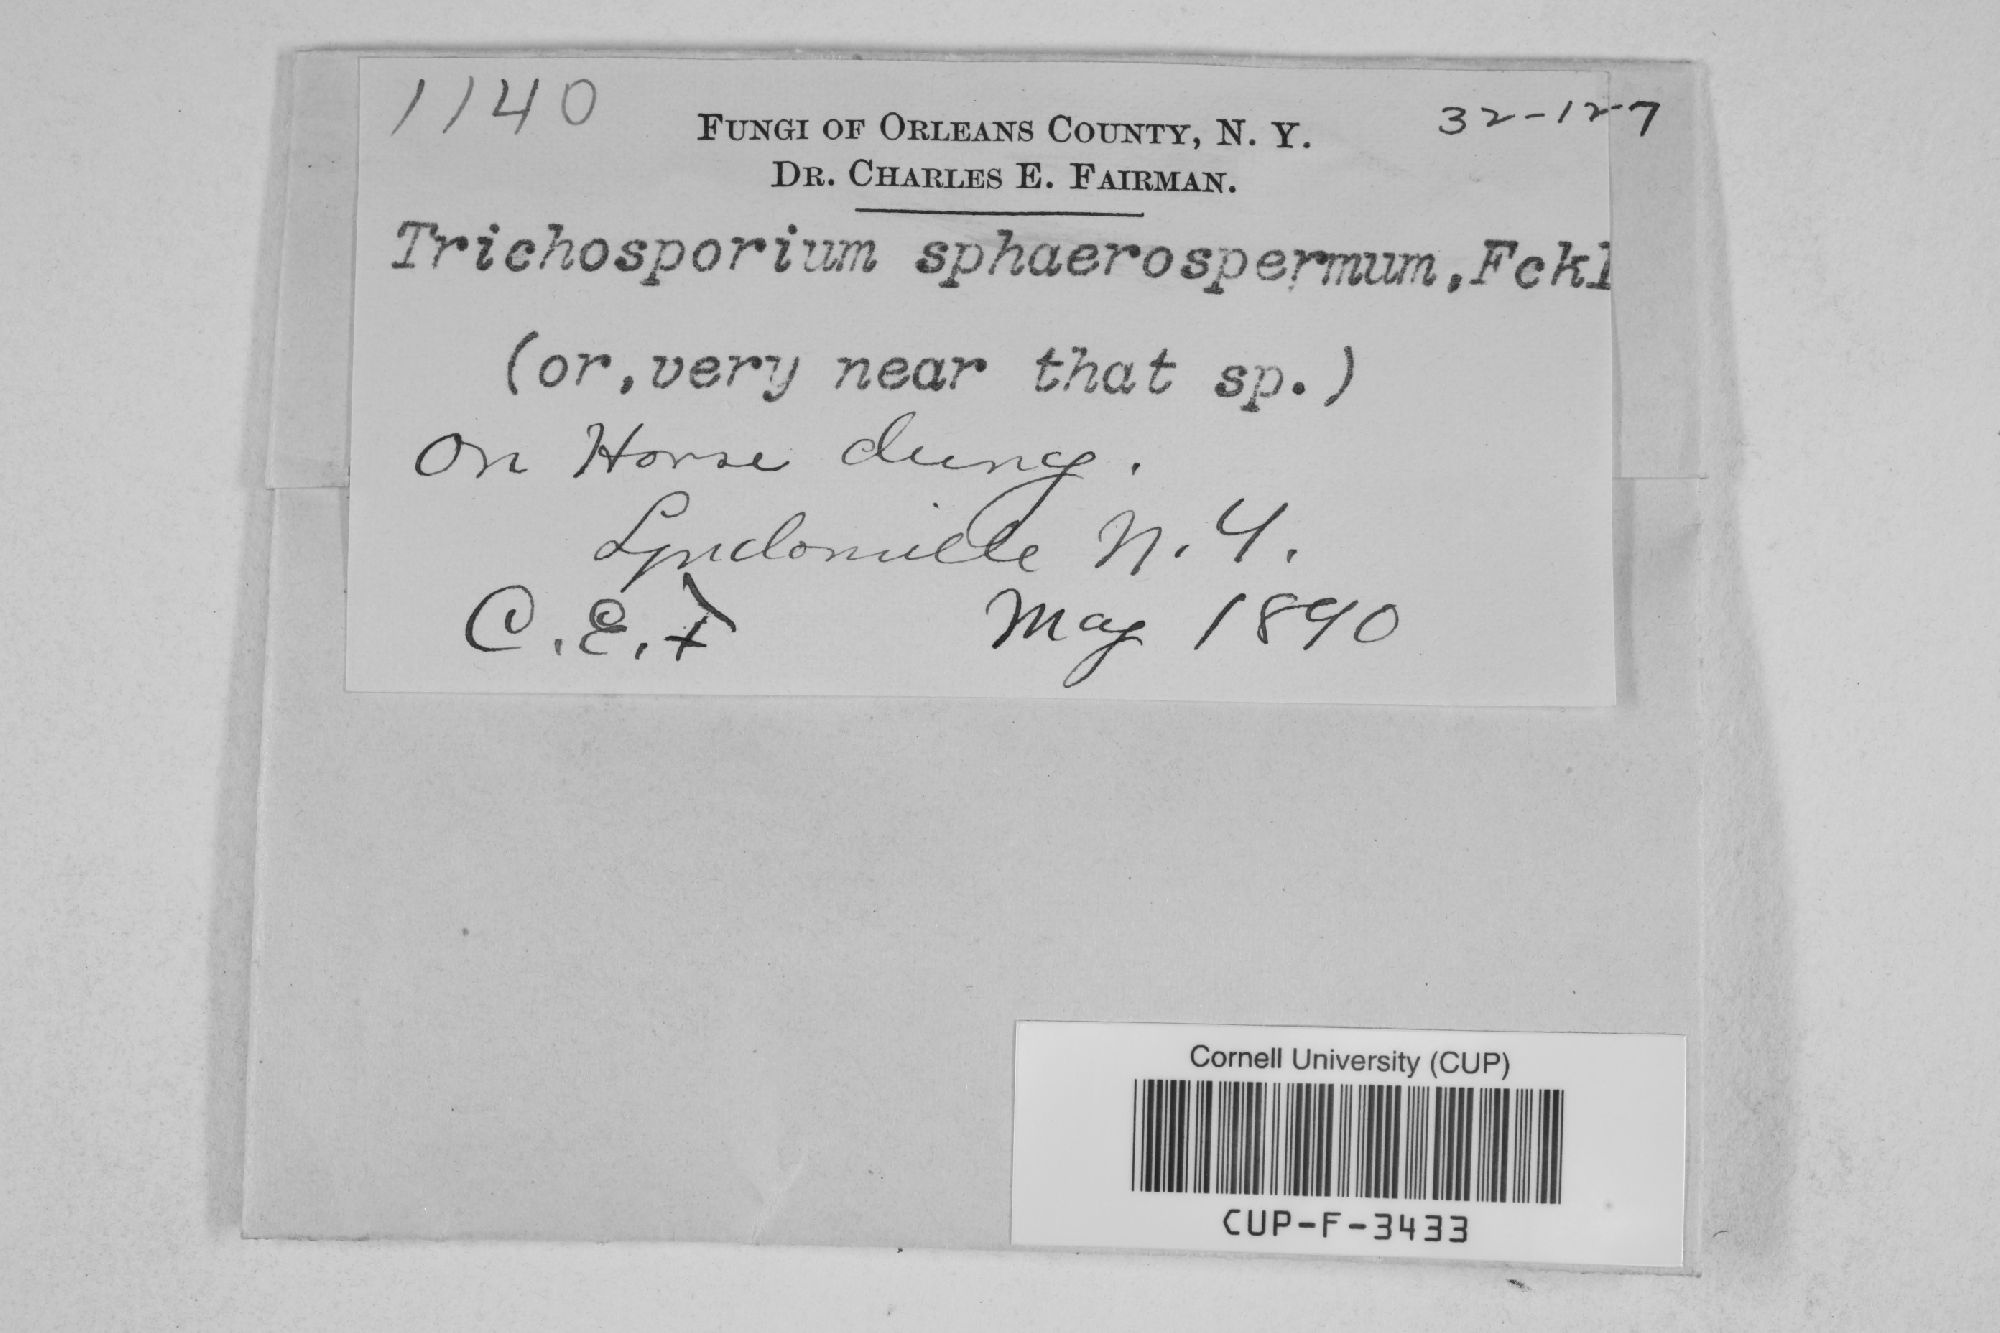 1140
32-127
FUNGI OF ORLEANS COUNTY, N. Y.
DR. CHARLES E. FAIRMAN.
Trichosporium sphaerospermum,Fckl
(or,very near that sp.)
On Horse dung.
Lyndonville N.Y.
C.E.F
May 1890
Cornell University (CUP)
CUP-F-3433